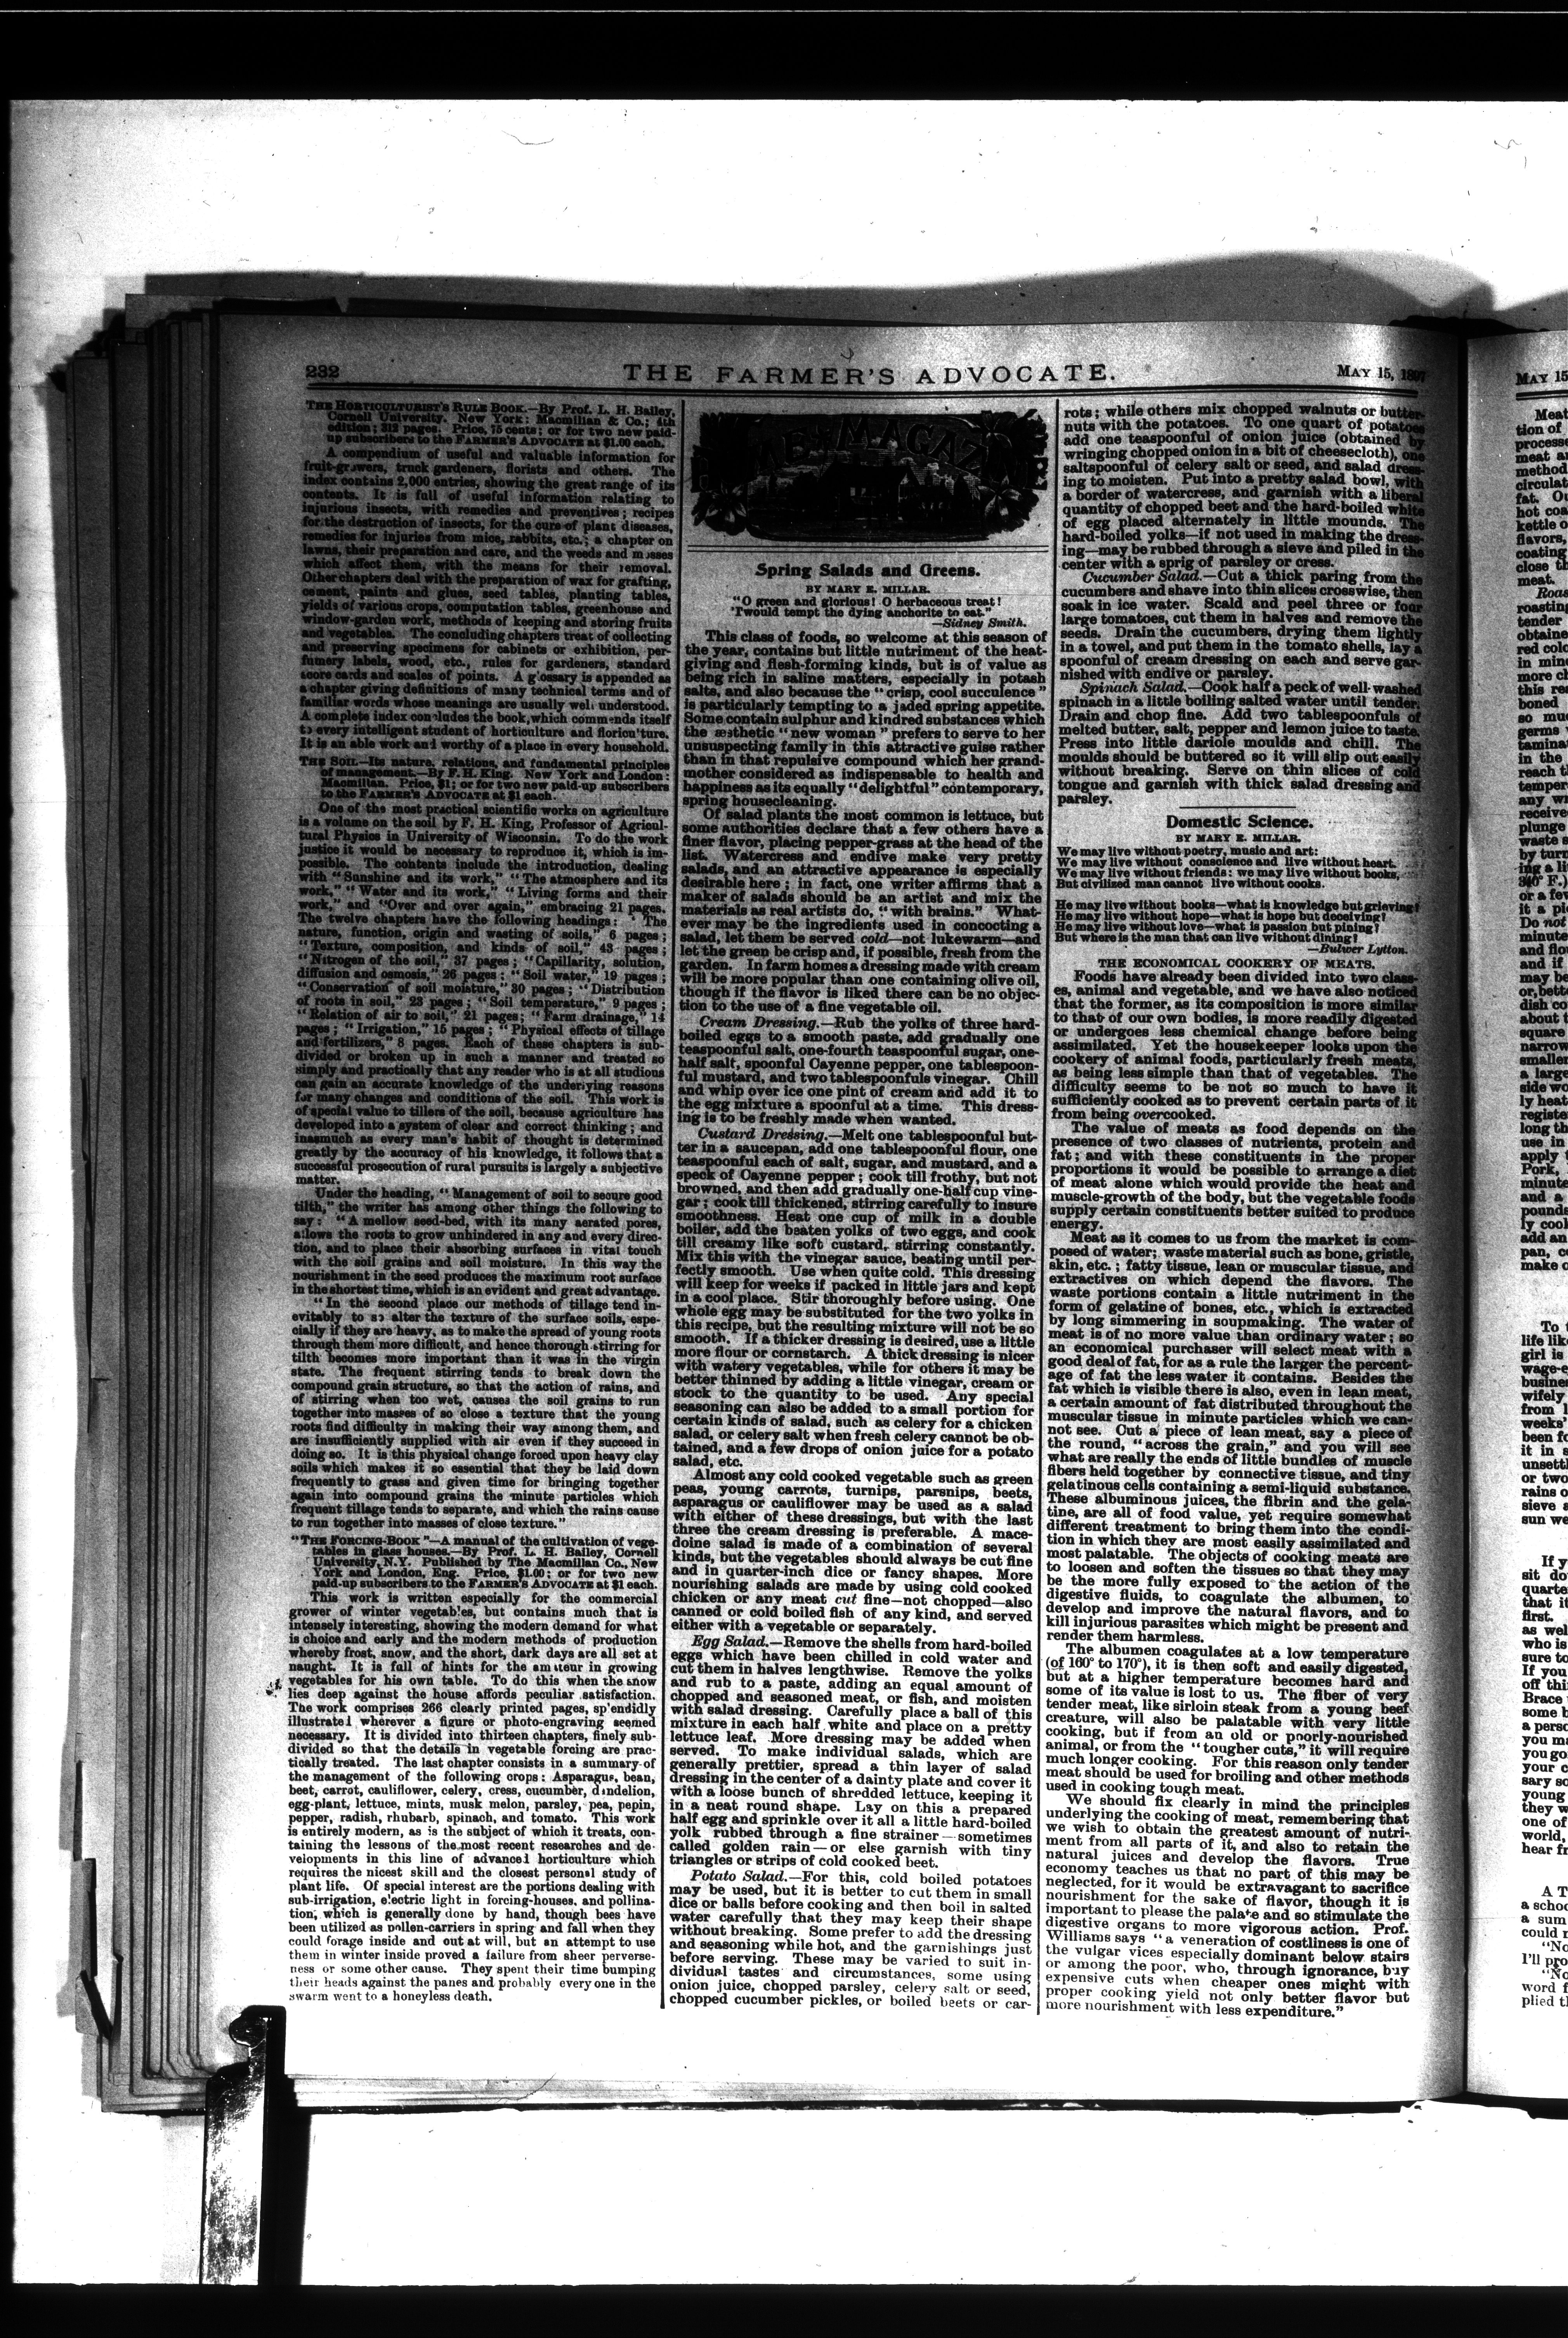 232
THE FARMER'S ADVOCATE.
MAY 15, 1897
THE HORTICULTURIST'S RULE BOOK.—By Prof. L. H. Bailey,
Cornell University. New York: Macmillan & Co.; 4th
edition; 312 pages. Price, 75 cents; or for two new paid-
up subscribers to the FARMER'S ADVOCATE at $1.00 each.
A compendium of useful and valuable information for
fruit-growers, truck gardeners, florists and others. The
index contains 2,000 entries, showing the great range of its
contents. It is full of useful information relating to
injurious insects, with remedies and preventives; recipes
for the destruction of insects, for the cure of plant diseases,
remedies for injuries from mice, rabbits, etc.; a chapter on
lawns, their preparation and care, and the weeds and mosses
which affect them, with the means for their removal.
Other chapters deal with the preparation of wax for grafting,
cement, paints and glues, seed tables, planting tables,
yields of various crops, computation tables, greenhouse and
window-garden work, methods of keeping and storing fruits
and vegetables. The concluding chapters treat of collecting
and preserving specimens for cabinets or exhibition, per-
fumery labels, wood, etc., rules for gardeners, standard
score cards and scales of points. A glossary is appended as
a chapter giving definitions of many technical terms and of
familiar words whose meanings are usually well understood.
A complete index concludes the book, which commends itself
to every intelligent student of horticulture and floriculture.
It is an able work and worthy of a place in every household.
THE SOIL—Its nature, relations, and fundamental principles
of management.—By F. H. King. New York and London:
Macmillan. Price, $1; or for two new paid-up subscribers
to the FARMER'S ADVOCATE at $1 each.
One of the most practical scientific works on agriculture
is a volume on the soil by F. H. King, Professor of Agricul-
tural Physics in University of Wisconsin. To do the work
justice it would be necessary to reproduce it, which is im-
possible. The contents include the introduction, dealing
with "Sunshine and its work," "The atmosphere and its
work," "Water and its work," "Living forms and their
work," and "Over and over again," embracing 21 pages.
The twelve chapters have the following headings: "The
nature, function, origin and wasting of soils," 6 pages;
"Texture, composition, and kinds of soil," 43 pages;
"Nitrogen of the soil," 37 pages; "Capillarity, solution,
diffusion and osmosis," 26 pages; "Soil water," 19 pages;
"Conservation of soil moisture," 30 pages; "Distribution
of roots in soil," 23 pages; "Soil temperature," 9 pages;
"Relation of air to soil," 21 pages; "Farm drainage," 14
pages; "Irrigation," 15 pages; "Physical effects of tillage
and fertilizers," 8 pages. Each of these chapters is sub-
divided or broken up in such a manner and treated so
simply and practically that any reader who is at all studious
can gain an accurate knowledge of the underlying reasons
for many changes and conditions of the soil. This work is
of special value to tillers of the soil, because agriculture has
developed into a system of clear and correct thinking; and
inasmuch as every man's habit of thought is determined
greatly by the accuracy of his knowledge, it follows that a
successful prosecution of rural pursuits is largely a subjective
matter.
Under the heading, "Management of soil to secure good
tilth," the writer has among other things the following to
say: "A mellow seed-bed, with its many aerated pores,
allows the roots to grow unhindered in any and every direc-
tion, and to place their absorbing surfaces in vital touch
with the soil grains and soil moisture. In this way the
nourishment in the seed produces the maximum root surface
in the shortest time, which is an evident and great advantage.
"In the second place our methods of tillage tend in-
evitably to so alter the texture of the surface soils, espe-
cially if they are heavy, as to make the spread of young roots
through them more difficult, and hence thorough stirring for
tilth becomes more important than it was in the virgin
state. The frequent stirring tends to break down the
compound grain structure, so that the action of rains, and
of stirring when too wet, causes the soil grains to run
together into masses of so close a texture that the young
roots find difficulty in making their way among them, and
are insufficiently supplied with air even if they succeed in
doing so. It is this physical change forced upon heavy clay
soils which makes it so essential that they be laid down
frequently to grass and given time for bringing together
again into compound grains the minute particles which
frequent tillage tends to separate, and which the rains cause
to run together into masses of close texture."
"THE FORCING-BOOK"—A manual of the cultivation of vege-
tables in glass houses.—By Prof. L. H. Bailey, Cornell
University, N.Y. Published by The Macmillan Co., New
York and London, Eng. Price, $1.00; or for two new
paid-up subscribers to the FARMER'S ADVOCATE at $1 each.
This work is written especially for the commercial
grower of winter vegetables, but contains much that is
intensely interesting, showing the modern demand for what
is choice and early and the modern methods of production
whereby frost, snow, and the short, dark days are all set at
naught. It is full of hints for the amateur in growing
vegetables for his own table. To do this when the snow
lies deep against the house affords peculiar satisfaction.
The work comprises 266 clearly printed pages, splendidly
illustrated wherever a figure or photo-engraving seemed
necessary. It is divided into thirteen chapters, finely sub-
divided so that the details in vegetable forcing are prac-
tically treated. The last chapter consists in a summary of
the management of the following crops: Asparagus, bean,
beet, carrot, cauliflower, celery, cress, cucumber, dandelion,
egg-plant, lettuce, mints, musk melon, parsley, pea, pepin,
pepper, radish, rhubarb, spinach, and tomato. This work
is entirely modern, as is the subject of which it treats, con-
taining the lessons of the most recent researches and de-
velopments in this line of advanced horticulture which
requires the nicest skill and the closest personal study of
plant life. Of special interest are the portions dealing with
sub-irrigation, electric light in forcing-houses, and pollina-
tion, which is generally done by hand, though bees have
been utilized as pollen-carriers in spring and fall when they
could forage inside and out at will, but an attempt to use
them in winter inside proved a failure from sheer perverse-
ness or some other cause. They spent their time bumping
their heads against the panes and probably every one in the
swarm went to a honeyless death.
MAGAZINE
Spring Salads and Greens.
BY MARY E. MILLAR.
"O green and glorious! O herbaceous treat!
'Twould tempt the dying anchorite to eat."
—Sidney Smith.
This class of foods, so welcome at this season of
the year, contains but little nutriment of the heat-
giving and flesh-forming kinds, but is of value as
being rich in saline matters, especially in potash
salts, and also because the "crisp, cool succulence"
is particularly tempting to a jaded spring appetite.
Some contain sulphur and kindred substances which
the æsthetic "new woman" prefers to serve to her
unsuspecting family in this attractive guise rather
than in that repulsive compound which her grand-
mother considered as indispensable to health and
happiness as its equally "delightful" contemporary,
spring housecleaning.
Of salad plants the most common is lettuce, but
some authorities declare that a few others have a
finer flavor, placing pepper-grass at the head of the
list. Watercress and endive make very pretty
salads, and an attractive appearance is especially
desirable here; in fact, one writer affirms that a
maker of salads should be an artist and mix the
materials as real artists do, "with brains." What-
ever may be the ingredients used in concocting a
salad, let them be served cold—not lukewarm—and
let the green be crisp and, if possible, fresh from the
garden. In farm homes a dressing made with cream
will be more popular than one containing olive oil,
though if the flavor is liked there can be no objec-
tion to the use of a fine vegetable oil.
Cream Dressing.—Rub the yolks of three hard-
boiled eggs to a smooth paste, add gradually one
teaspoonful salt, one-fourth teaspoonful sugar, one-
half salt, spoonful Cayenne pepper, one tablespoon-
ful mustard, and two tablespoonfuls vinegar. Chill
and whip over ice one pint of cream and add it to
the egg mixture a spoonful at a time. This dress-
ing is to be freshly made when wanted.
Custard Dressing.—Melt one tablespoonful but-
ter in a saucepan, add one tablespoonful flour, one
teaspoonful each of salt, sugar, and mustard, and a
speck of Cayenne pepper; cook till frothy, but not
browned, and then add gradually one-half cup vine-
gar; cook till thickened, stirring carefully to insure
smoothness. Heat one cup of milk in a double
boiler, add the beaten yolks of two eggs, and cook
till creamy like soft custard, stirring constantly.
Mix this with the vinegar sauce, beating until per-
fectly smooth. Use when quite cold. This dressing
will keep for weeks if packed in little jars and kept
in a cool place. Stir thoroughly before using. One
whole egg may be substituted for the two yolks in
this recipe, but the resulting mixture will not be so
smooth. If a thicker dressing is desired, use a little
more flour or cornstarch. A thick dressing is nicer
with watery vegetables, while for others it may be
better thinned by adding a little vinegar, cream or
stock to the quantity to be used. Any special
seasoning can also be added to a small portion for
certain kinds of salad, such as celery for a chicken
salad, or celery salt when fresh celery cannot be ob-
tained, and a few drops of onion juice for a potato
salad, etc.
Almost any cold cooked vegetable such as green
peas, young carrots, turnips, parsnips, beets,
asparagus or cauliflower may be used as a salad
with either of these dressings, but with the last
three the cream dressing is preferable. A mace-
doine salad is made of a combination of several
kinds, but the vegetables should always be cut fine
and in quarter-inch dice or fancy shapes. More
nourishing salads are made by using cold cooked
chicken or any meat cut fine—not chopped—also
canned or cold boiled fish of any kind, and served
either with a vegetable or separately.
Egg Salad.—Remove the shells from hard-boiled
eggs which have been chilled in cold water and
cut them in halves lengthwise. Remove the yolks
and rub to a paste, adding an equal amount of
chopped and seasoned meat, or fish, and moisten
with salad dressing. Carefully place a ball of this
mixture in each half white and place on a pretty
lettuce leaf. More dressing may be added when
served. To make individual salads, which are
generally prettier, spread a thin layer of salad
dressing in the center of a dainty plate and cover it
with a loose bunch of shredded lettuce, keeping it
in a neat round shape. Lay on this a prepared
half egg and sprinkle over it all a little hard-boiled
yolk rubbed through a fine strainer—sometimes
called golden rain—or else garnish with tiny
triangles or strips of cold cooked beet.
Potato Salad.—For this, cold boiled potatoes
may be used, but it is better to cut them in small
dice or balls before cooking and then boil in salted
water carefully that they may keep their shape
without breaking. Some prefer to add the dressing
and seasoning while hot, and the garnishings just
before serving. These may be varied to suit in-
dividual tastes and circumstances, some using
onion juice, chopped parsley, celery salt or seed,
chopped cucumber pickles, or boiled beets or car-
rots; while others mix chopped walnuts or butter-
nuts with the potatoes. To one quart of potatoes
add one teaspoonful of onion juice (obtained by
wringing chopped onion in a bit of cheesecloth), one
saltspoonful of celery salt or seed, and salad dress-
ing to moisten. Put into a pretty salad bowl, with
a border of watercress, and garnish with a liberal
quantity of chopped beet and the hard-boiled white
of egg placed alternately in little mounds. The
hard-boiled yolks—if not used in making the dress-
ing—may be rubbed through a sieve and piled in the
center with a sprig of parsley or cress.
Cucumber Salad.—Cut a thick paring from the
cucumbers and shave into thin slices crosswise, then
soak in ice water. Scald and peel three or four
large tomatoes, cut them in halves and remove the
seeds. Drain the cucumbers, drying them lightly
in a towel, and put them in the tomato shells, lay a
spoonful of cream dressing on each and serve gar-
nished with endive or parsley.
Spinach Salad.—Cook half a peck of well-washed
spinach in a little boiling salted water until tender.
Drain and chop fine. Add two tablespoonfuls of
melted butter, salt, pepper and lemon juice to taste.
Press into little dariole moulds and chill. The
moulds should be buttered so it will slip out easily
without breaking. Serve on thin slices of cold
tongue and garnish with thick salad dressing and
parsley.
Domestic Science.
BY MARY E. MILLAR.
We may live without poetry, music and art:
We may live without conscience and live without heart.
We may live without friends: we may live without books,
But civilized man cannot live without cooks.
He may live without books—what is knowledge but grieving?
He may live without hope—what is hope but deceiving?
He may live without love—what is passion but pining?
But where is the man that can live without dining?
—Bulwer Lytton.
THE ECONOMICAL COOKERY OF MEATS.
Foods have already been divided into two class-
es, animal and vegetable, and we have also noticed
that the former, as its composition is more similar
to that of our own bodies, is more readily digested
or undergoes less chemical change before being
assimilated. Yet the housekeeper looks upon the
cookery of animal foods, particularly fresh meats,
as being less simple than that of vegetables. The
difficulty seems to be not so much to have it
sufficiently cooked as to prevent certain parts of it
from being overcooked.
The value of meats as food depends on the
presence of two classes of nutrients, protein and
fat; and with these constituents in the proper
proportions it would be possible to arrange a diet
of meat alone which would provide the heat and
muscle-growth of the body, but the vegetable foods
supply certain constituents better suited to produce
energy.
Meat as it comes to us from the market is com-
posed of water; waste material such as bone, gristle,
skin, etc.; fatty tissue, lean or muscular tissue, and
extractives on which depend the flavors. The
waste portions contain a little nutriment in the
form of gelatine of bones, etc., which is extracted
by long simmering in soupmaking. The water of
meat is of no more value than ordinary water; so
an economical purchaser will select meat with a
good deal of fat, for as a rule the larger the percent-
age of fat the less water it contains. Besides the
fat which is visible there is also, even in lean meat,
a certain amount of fat distributed throughout the
muscular tissue in minute particles which we can-
not see. Cut a piece of lean meat, say a piece of
the round, "across the grain," and you will see
what are really the ends of little bundles of muscle
fibers held together by connective tissue, and tiny
gelatinous cells containing a semi-liquid substance.
These albuminous juices, the fibrin and the gela-
tine, are all of food value, yet require somewhat
different treatment to bring them into the condi-
tion in which they are most easily assimilated and
most palatable. The objects of cooking meats are
to loosen and soften the tissues so that they may
be the more fully exposed to the action of the
digestive fluids, to coagulate the albumen, to
develop and improve the natural flavors, and to
kill injurious parasites which might be present and
render them harmless.
The albumen coagulates at a low temperature
(of 160° to 170°), it is then soft and easily digested,
but at a higher temperature becomes hard and
some of its value is lost to us. The fiber of very
tender meat, like sirloin steak from a young beef
creature, will also be palatable with very little
cooking, but if from an old or poorly-nourished
animal, or from the "tougher cuts," it will require
much longer cooking. For this reason only tender
meat should be used for broiling and other methods
used in cooking tough meat.
We should fix clearly in mind the principles
underlying the cooking of meat, remembering that
we wish to obtain the greatest amount of nutri-
ment from all parts of it, and also to retain the
natural juices and develop the flavors. True
economy teaches us that no part of this may be
neglected, for it would be extravagant to sacrifice
nourishment for the sake of flavor, though it is
important to please the palate and so stimulate the
digestive organs to more vigorous action. Prof.
Williams says "a veneration of costliness is one of
the vulgar vices especially dominant below stairs
or among the poor, who, through ignorance, buy
expensive cuts when cheaper ones might with
proper cooking yield not only better flavor but
more nourishment with less expenditure."
MAY 15